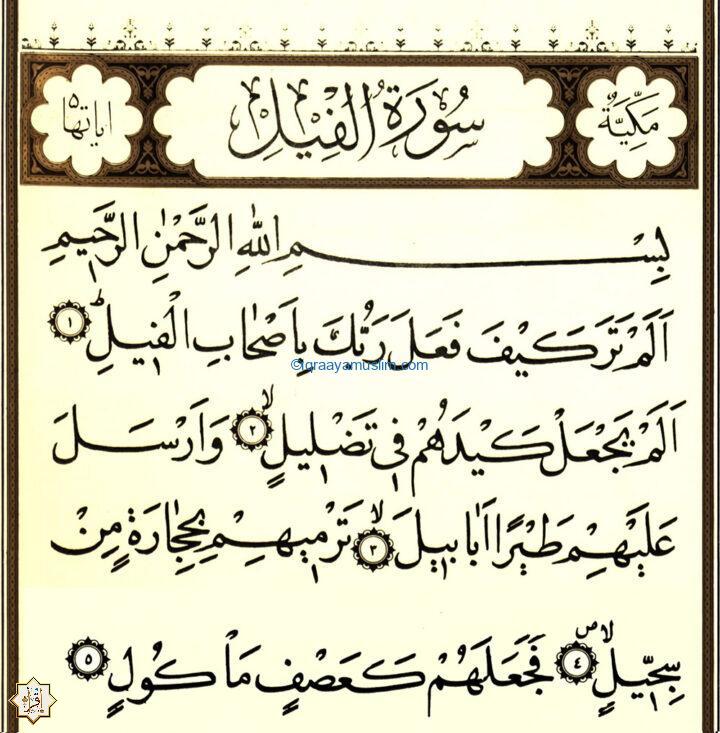 مَكِّيَّةٌ
سُورَةُ الْفِيلِ
اياتها ٥
بِسْمِ اللّٰهِ الرَّحْمٰنِ الرَّحٖيمِ
اَلَمْ تَرَ كَيْفَ فَعَلَ رَبُّكَ بِاَصْحَابِ الْفٖيلِؕ ١
©Iqraayamuslim.com
اَلَمْ يَجْعَلْ كَيْدَهُمْ فٖى تَضْلٖيلٍۙ ٢ وَاَرْسَلَ
عَلَيْهِمْ طَيْرًا اَبَابٖيلَۙ ٣ تَرْمٖيهِمْ بِحِجَارَةٍ مِنْ
سِجّٖيلٍۙۖ ٤ فَجَعَلَهُمْ كَعَصْفٍ مَاْكُولٍ ٥